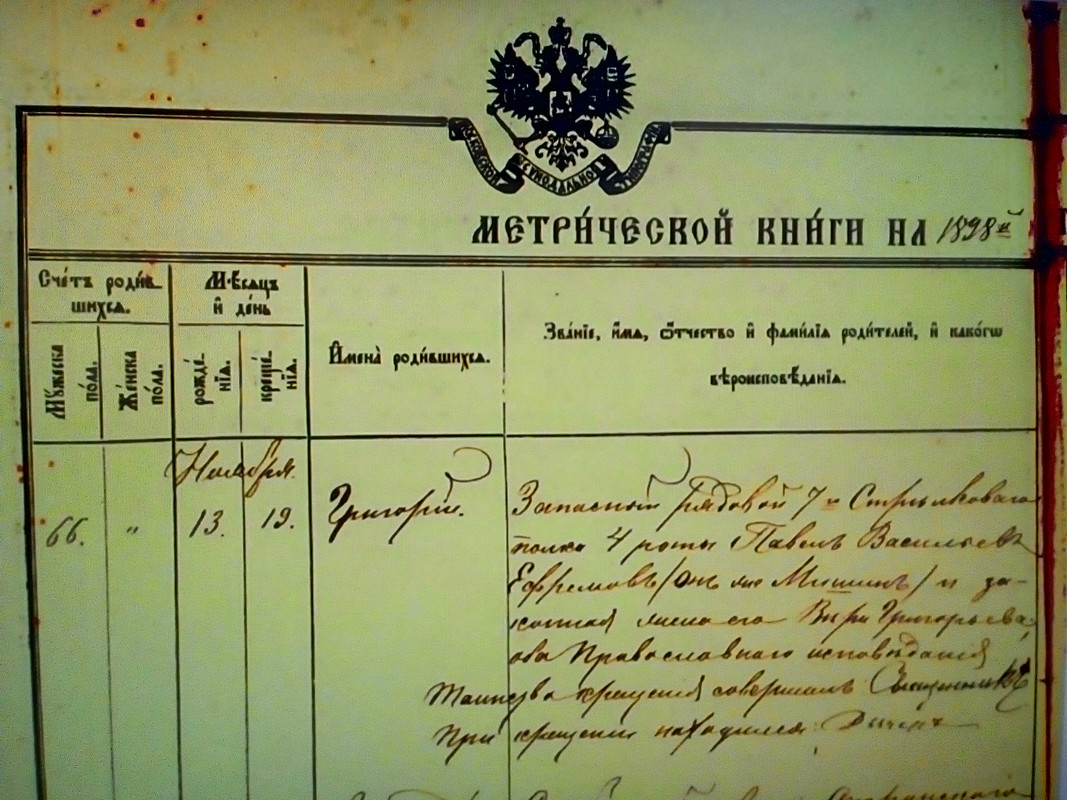 МОСКОВСКОЙ СѴНОДАЛЬНОЙ ТИПОГРАФІИ
МЕТРИ́ЧЕСКОЙ КНИ́ГИ НА 1898й
Сче́тъ роди́в-
шихся.
Мѣ́сяцъ
и҆ де́нь
Мꙋ́жеска
по́ла.
Же́нска
по́ла.
рожде́-
нїѧ.
креще́-
нїѧ.
И҆мена̀ роди́вшихся.
Зва́нїе, и҆́мя, ѻ҆́тчество и҆ фами́лїѧ роди́телей, и҆ како́гѡ
вѣроисповѣ́данїѧ.
Ноября.
66. „ 13. 19. Григорій. Запасный рядовой 7го Стрѣлковаго
полка 4 роты Павелъ Васильевъ
Ефремовъ (онъ же Мишинъ) и за-
конная жена его Вѣра Григорьева,
оба Православнаго исповѣданія
Таинство крещенія совершалъ Священникъ
При крещеніи находился